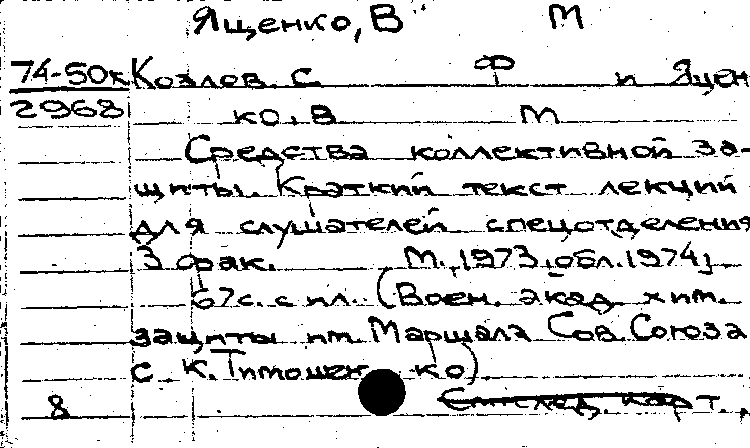 Ященко, В М
74-50к Козлов, С Ф и Ящен-
2968 ко, В М
Средства коллективной за-
щиты. Краткий текст лекций
для слушателей спецотделения
3 фак. М., 1973, обл. 1974,
67с. с ил. (Воен. акад. хим.
защиты им. Маршала Сов. Союза
С. К. Тимошенко).
8 карт.